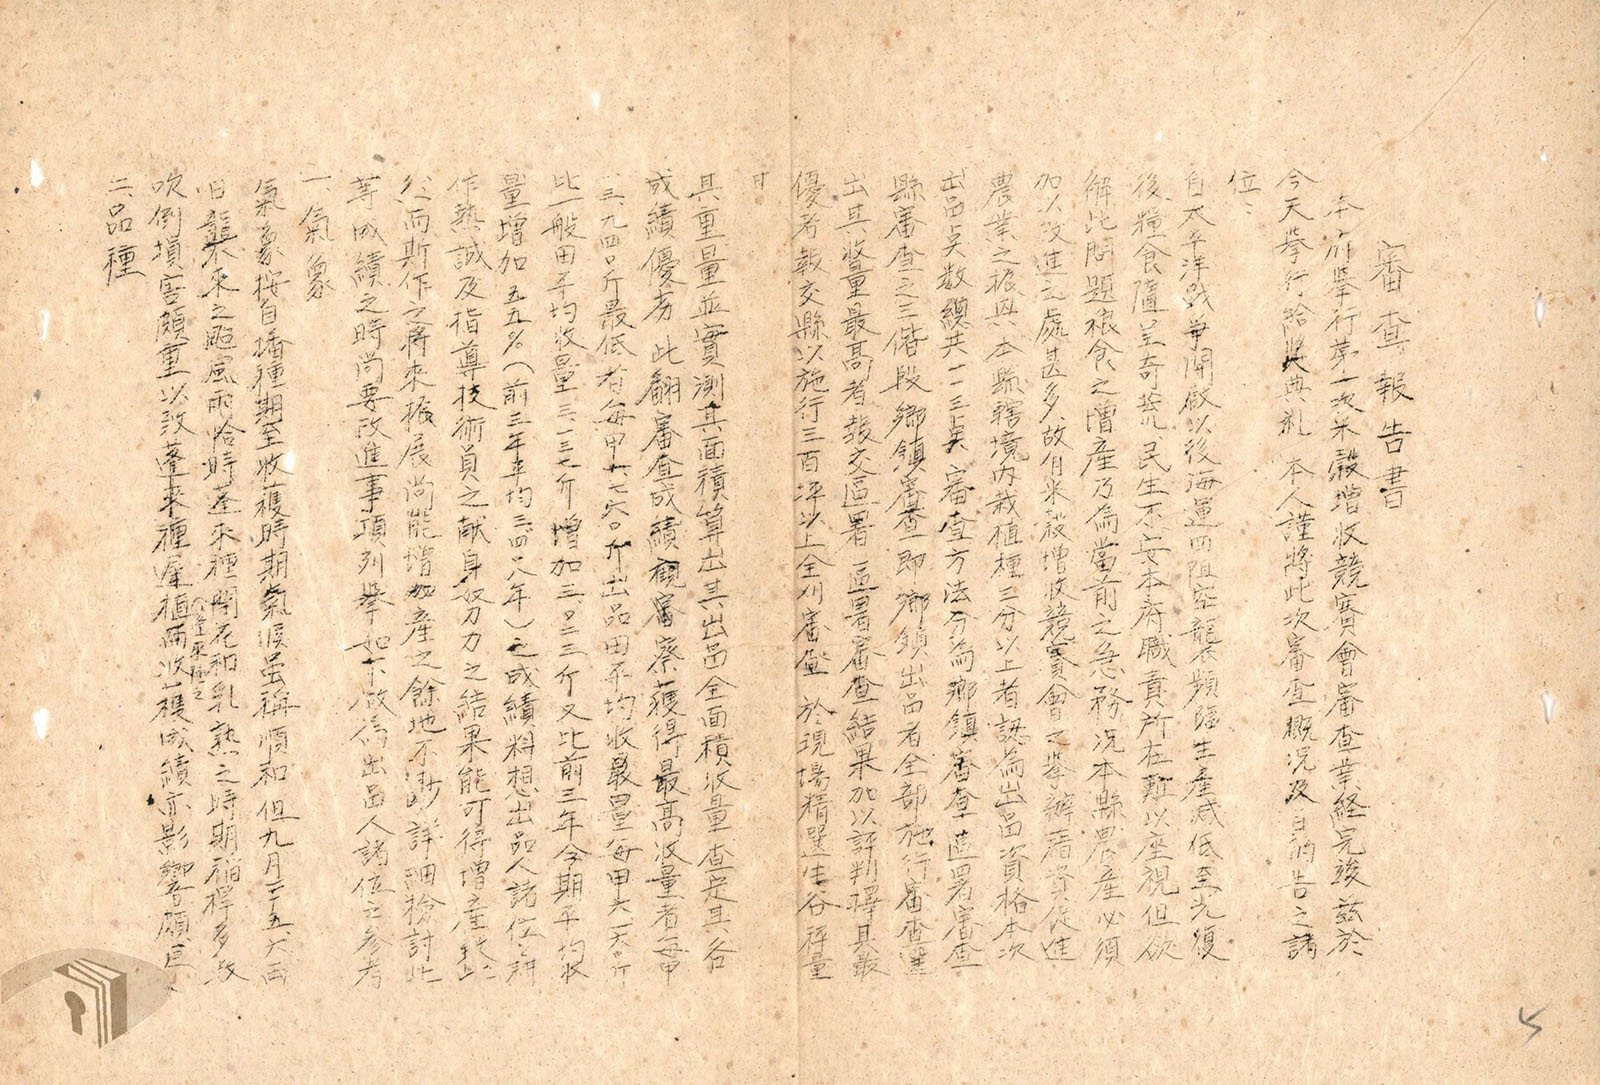 審查報告書
本府舉行第一次米穀增收競賽會審查業経完竣茲於
今天舉行給獎典礼 本人謹將此次審查概況及目的告之諸
位：
自太平洋戰爭開啟以後海運四阻空襲頻臨生產減低至光復
後糧食匱乏奇荒民生不安本府職責所在難以座視但欲
解此問題粮食之增產乃為當前之急務况本縣農產必須
加以改進之處甚多故有米穀增收競賽會之舉辦藉資促進
農業之振興凡本縣轄境內栽植種三分以上者認為出品資格本次
出品点数總共一一三点審查方法分為鄉鎮審查區署審查
縣審查之三階段鄉鎮審查即鄉鎮出品者全部施行審查選
出其收量最高者報交區署 區署審查結果加以評判擇其最
優者報交縣以施行三百坪以上全刈審查 於現場精選生谷秤量
其重量並實測其面積算出其出品全面積收量查定其各
成績優劣 此翻審查成績觀審察獲得最高收量者每甲
最低者每甲 斤出品田平均收量每甲六一六〇斤
比一般田平均收量三一三七斤增加三〇二三斤又比前三年今期平均收
量增加五五％（前三年平均三四〇八年）之成績料想出品人諸位之耕
作熱誠及指導技術員之献身努力之結果能可得增產
然而斯作之將來振展尚能增加產之餘地不尠詳細檢討此
等成績之時尚要改進事項列舉如下做為出品人諸位之参考
一、氣象
氣象按自播種期至收穫時期氣候虽稱順和但九月二十五、六兩
日襲來之颱風雨恰時蓬來種開花和乳熟之時期稻桿多致
吹倒損害頗重以致蓬來種遲植而收穫成績亦影響頗
二、品種